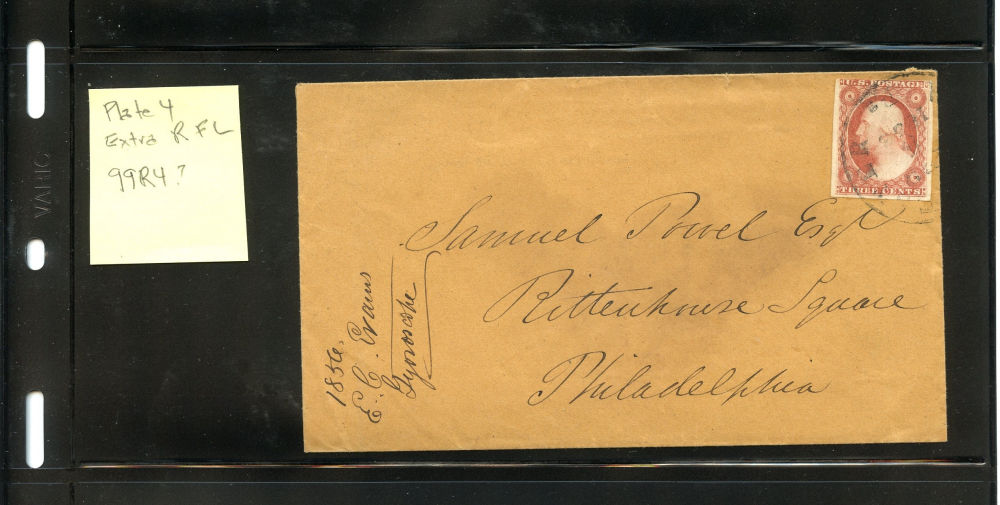 Plate 4
Extra R F L
99R4?
VARIO
U.S. POSTAGE
THREE CENTS
Samuel Powel Esqr
Rittenhouse Square
Philadelphia
1856.
E. C. Evans
Gyroscope